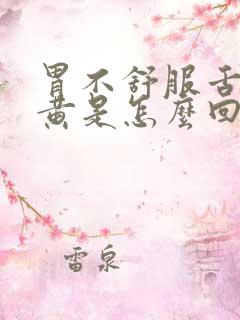 胃不舒服舌
黄是怎麼回
雷泉